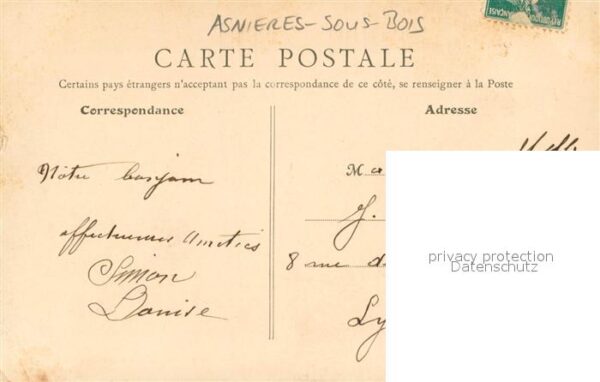 ASNIERES-SOUS-BOIS
CARTE POSTALE
Certains pays étrangers n'acceptant pas la correspondance de ce côté, se renseigner à la Poste
Correspondance
Adresse
Notre bonjour
M
affectueuses amitiés
J.
Simon
8 rue d
Denise
Ly
privacy protection
Datenschutz